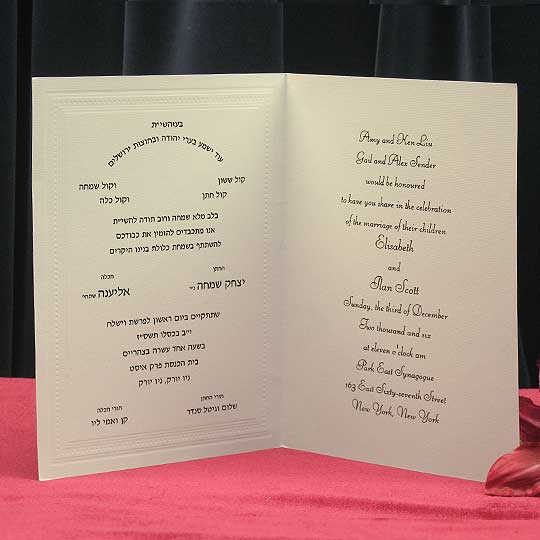 בעזהשי״ת
עוד ישמע בערי יהודה ובחוצות ירושלים
קול ששון
וקול שמחה
קול חתן
וקול כלה
בלב מלא שמחה ורוב תודה להשי״ת
אנו מתכבדים להזמין את כבודכם
להשתתף בשמחת כלולת בנינו היקרים
החתן
הכלה
יצחק שמחה ני״ו
אליענה שתחי׳
שתתקיים ביום ראשון לפרשת וישלח
י״ב בכסלו תשס״ז
בשעה אחד עשרה בצהריים
בית הכנסת פרק איסט
ניו יורק, ניו יורק
הורי החתן
הורי הכלה
שלום וגיטל סנדר
קן ואמי ליו
Amy and Ken Liu
Gail and Alex Sender
would be honoured
to have you share in the celebration
of the marriage of their children
Elisabeth
and
Ilan Scott
Sunday, the third of December
Two thousand and six
at eleven o'clock am
Park East Synagogue
163 East Sixty-seventh Street
New York, New York